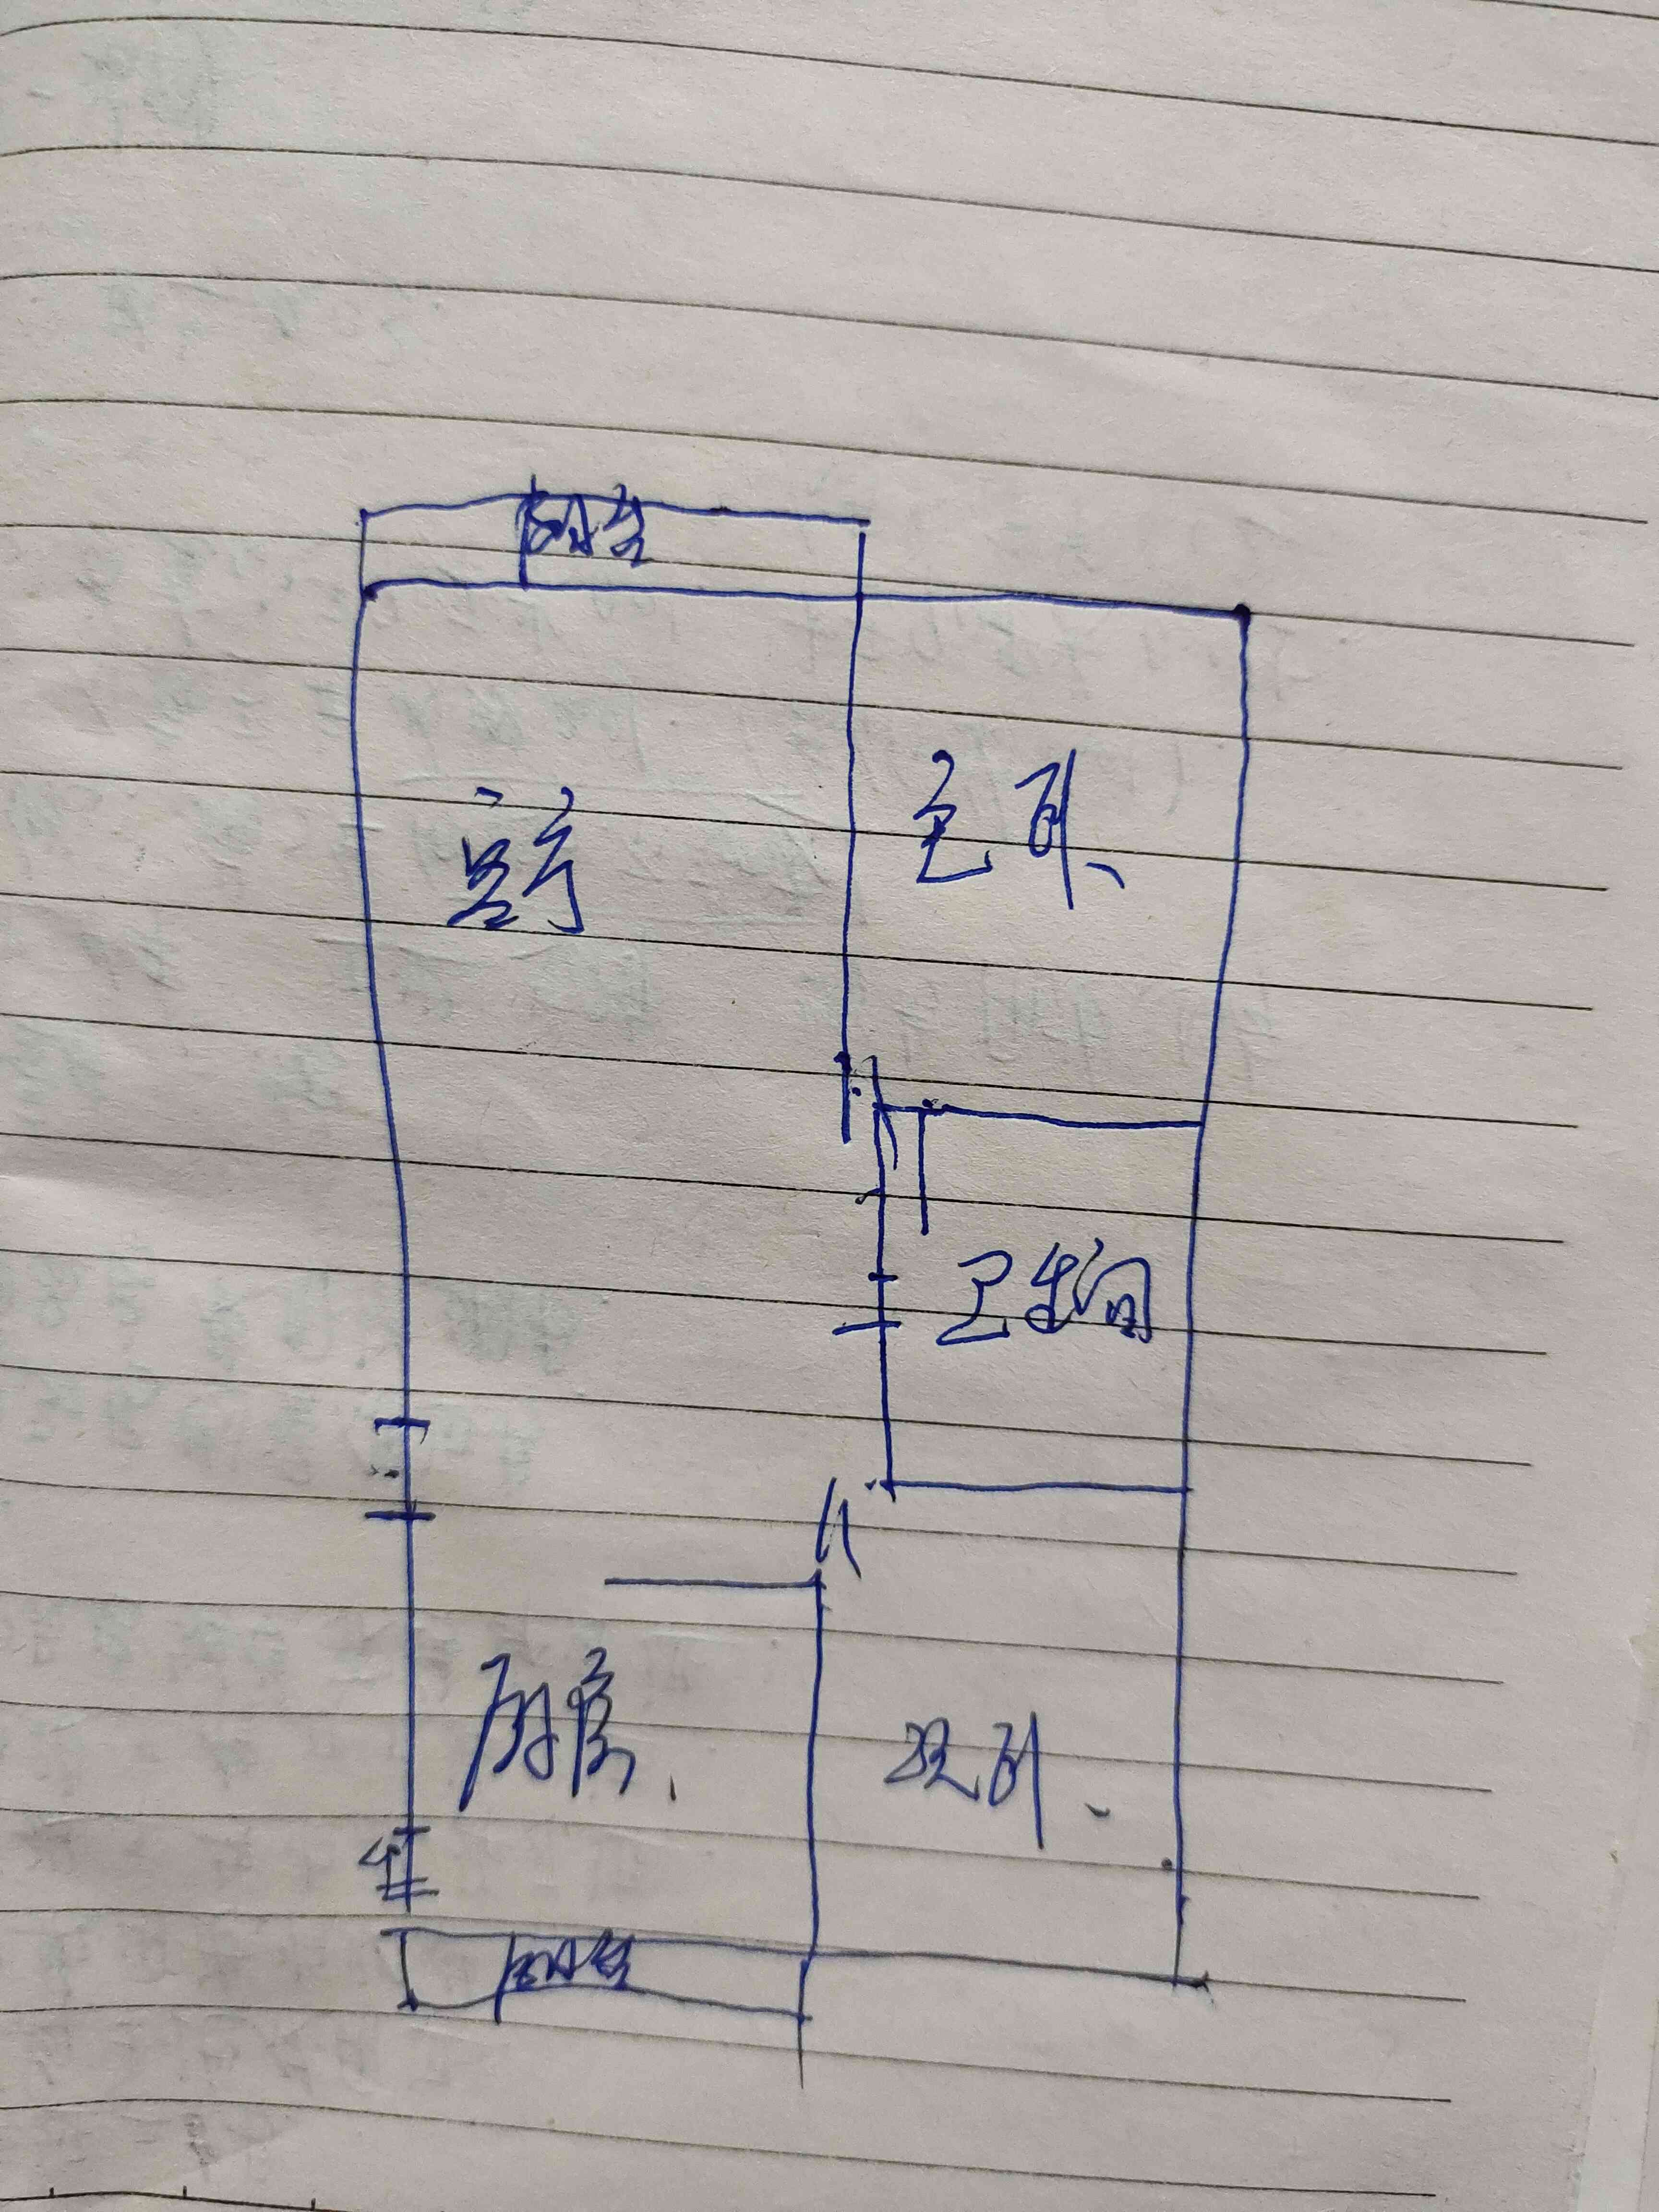 阳台
客厅
主卧
卫生间
厨房
次卧
阳台